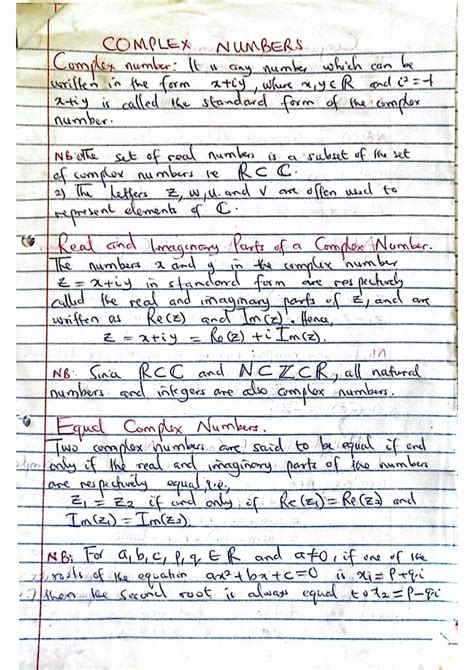 COMPLEX NUMBERS
Complex number: It is any number which can be
written in the form x+iy, where x,y∈R and i²=-1
x+iy is called the standard form of the complex
number.
NB: The set of real numbers is a subset of the set
of complex numbers ie R⊂C.
2) The letters Z, w, u. and v are often used to
represent elements of C.
Real and Imaginary Parts of a Complex Number.
The numbers x and y in the complex number
Z = x+iy in standard form are respectively
called the real and imaginary parts of Z, and are
written as Re(z) and Im(z). Hence,
Z = x+iy = Re(z) + i Im(z).
NB: Since R⊂C and N⊂Z⊂R, all natural
numbers and integers are also complex numbers.
Equal Complex Numbers.
Two complex numbers are said to be equal if and
only if the real and imaginary parts of two numbers
are respectively equal, i.e,
Z₁ = Z₂ if and only if Re(z₁)=Re(z₂) and
Im(z₁) = Im(z₂).
NB: For a,b,c, p,q ∈R and a≠0, if one of the
roots of the equation ax²+bx+c=0 is x₁=p+qi
then the second root is always equal to x₂=p-qi